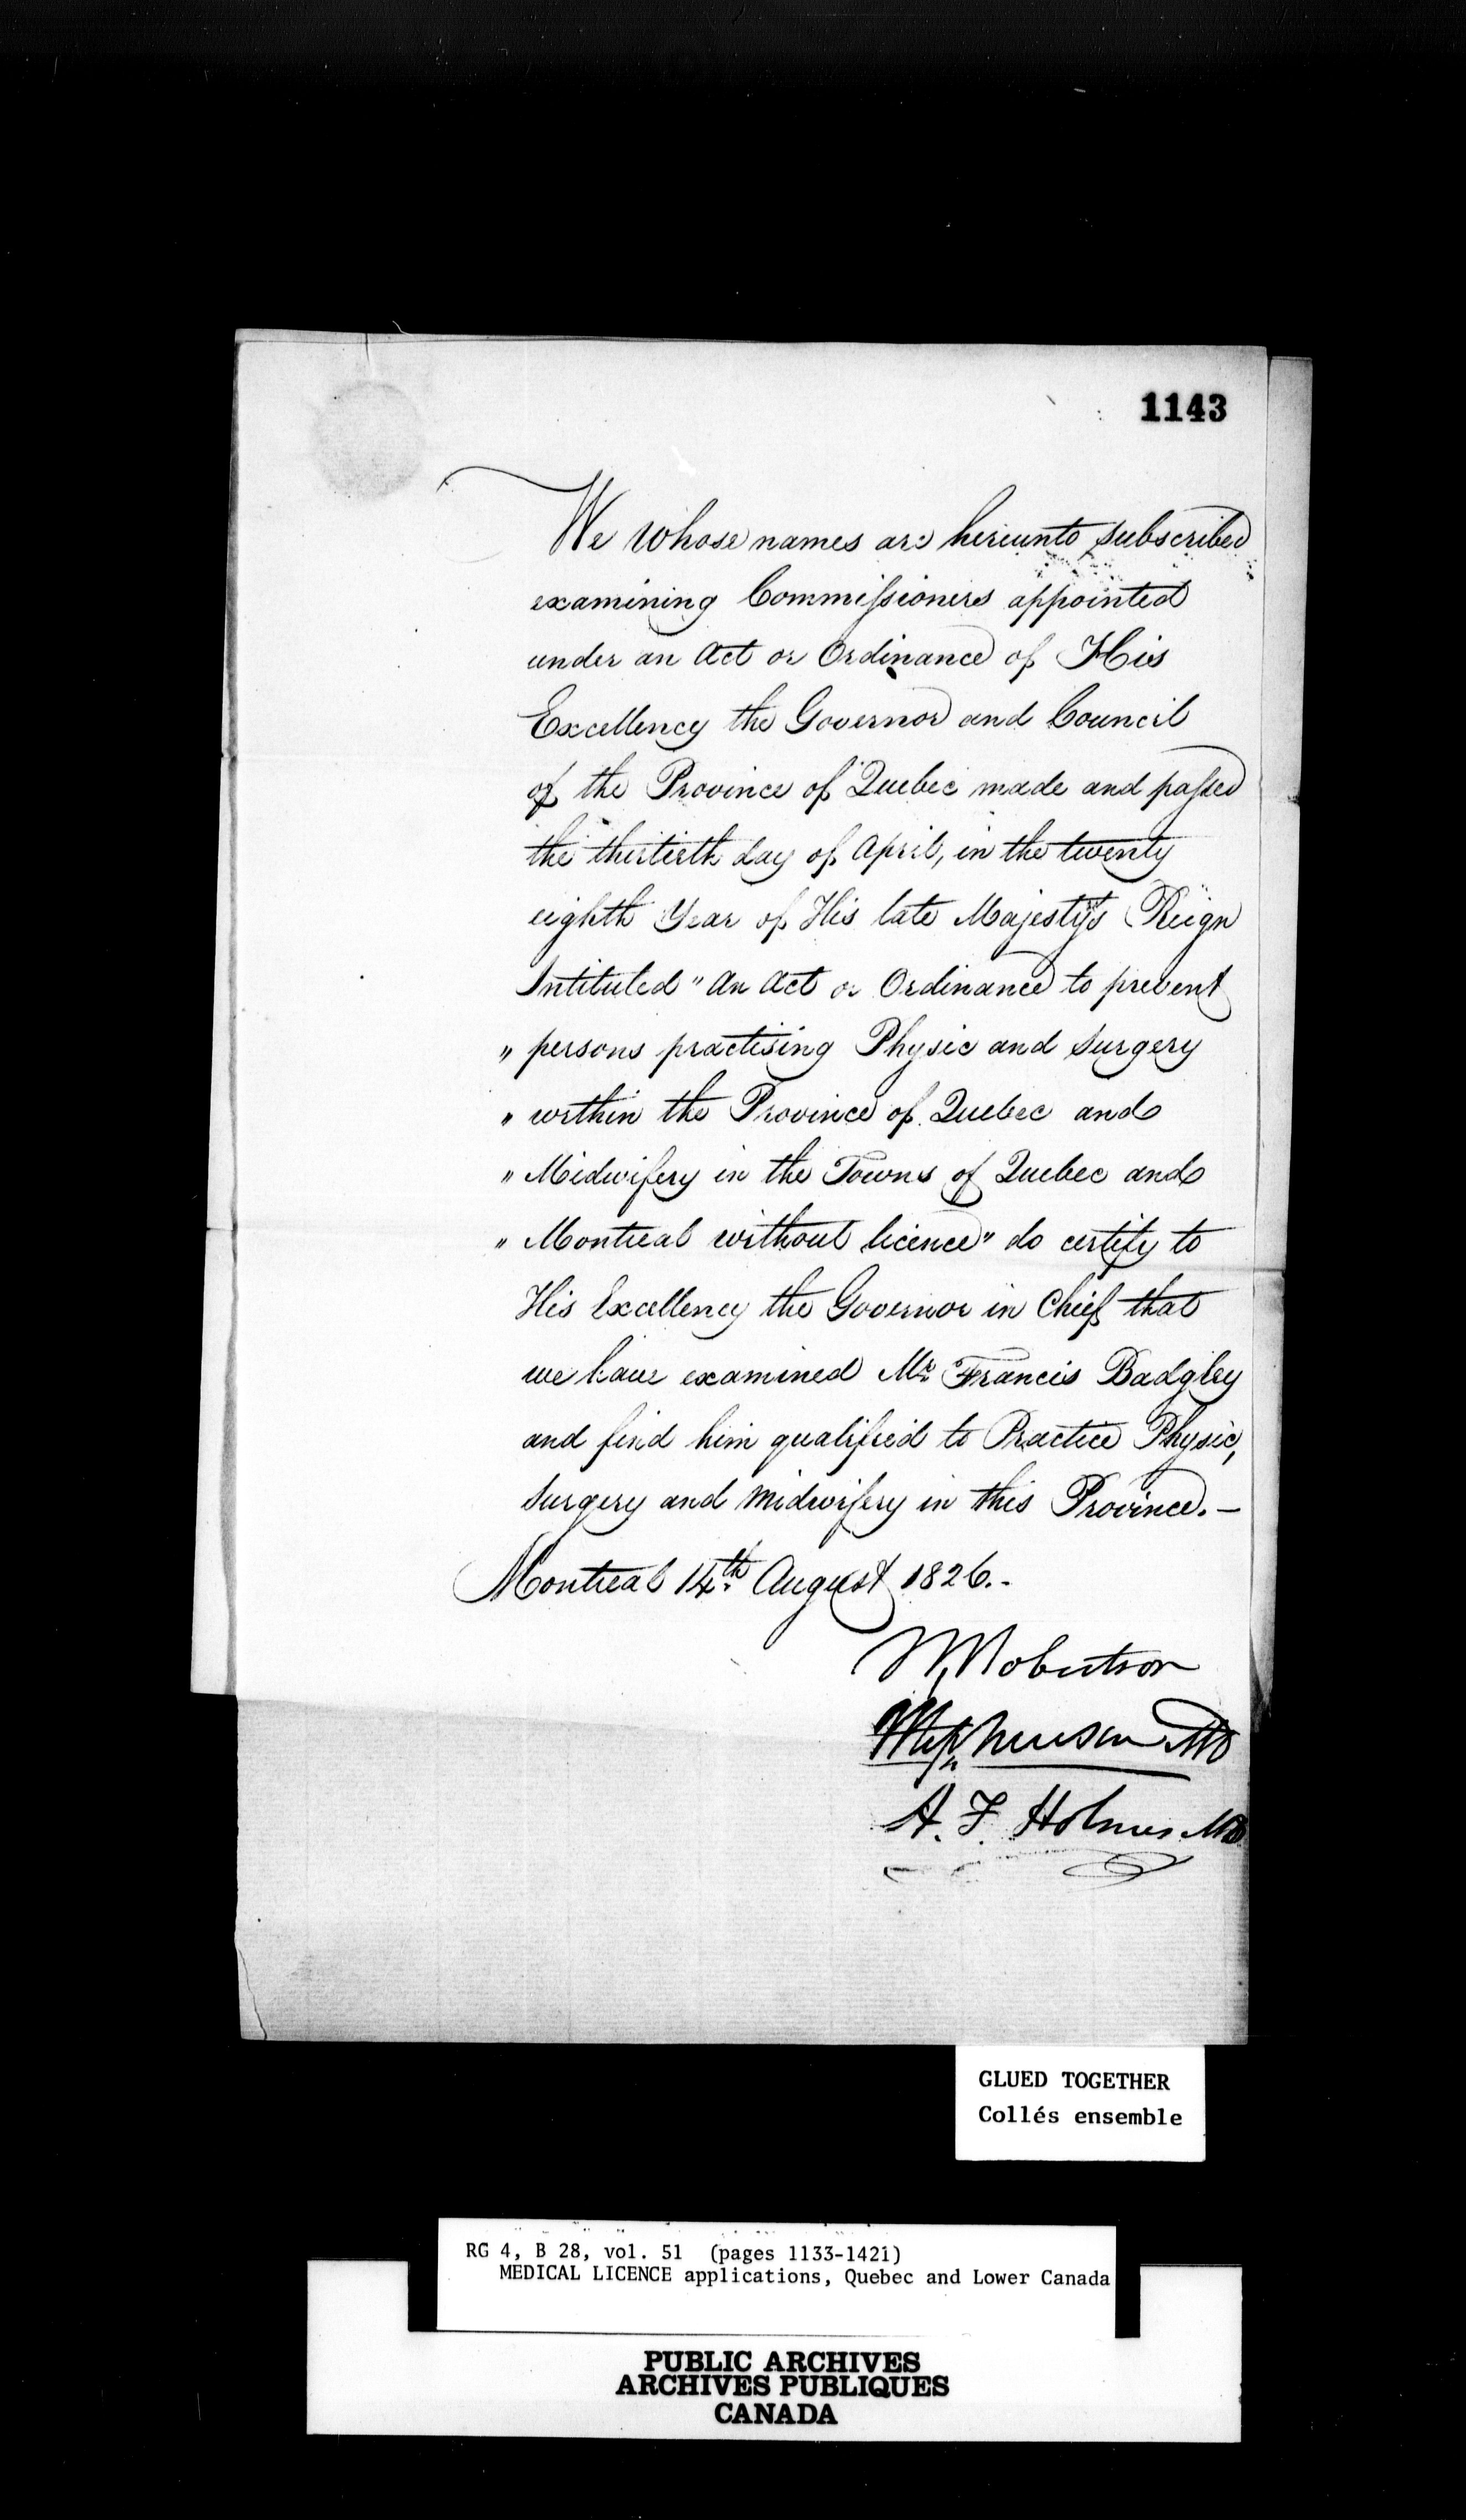 1143
We whose names are hereunto subscribed
examining Commissioners appointed
under an Act or Ordinance of His
Excellency the Governor and Council
of the Province of Quebec made and passed
the thirtieth day of April, in the twenty
eighth Year of His late Majesty's Reign
Intituled "An Act or Ordinance to prevent
" persons practising Physic and Surgery
" within the Province of Quebec and
" Midwifery in the Towns of Quebec and
" Montreal without licence" do certify to
His Excellency the Governor in Chief that
we have examined Mr. Francis Badgley
and find him qualified to Practice Physic,
Surgery and Midwifery in this Province.—
Montreal 14th August 1826.-
W Robertson
Stephenson MD
A. F. Holmes MD
GLUED TOGETHER
Collés ensemble
RG 4, B 28, vol. 51 (pages 1133-1421)
MEDICAL LICENCE applications, Quebec and Lower Canada
PUBLIC ARCHIVES
ARCHIVES PUBLIQUES
CANADA